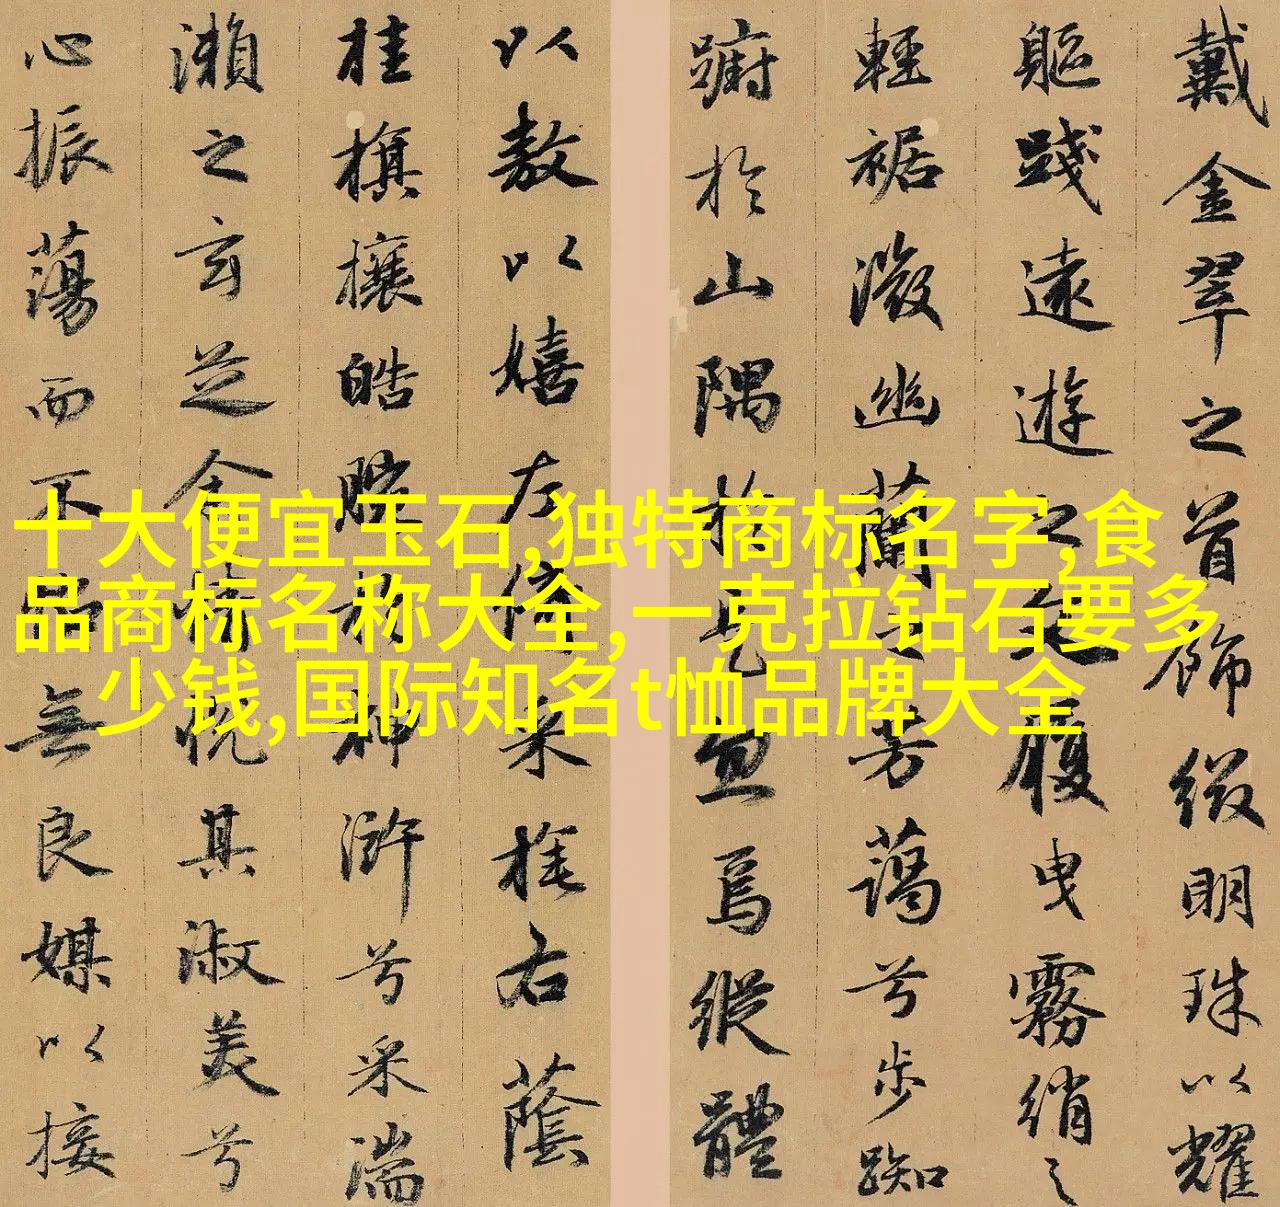 戴金翠之首飾綴明珠以耀
軀踐遠遊之文履曳霧綃之
輕裾微幽蘭之芳藹兮步踟
躕於山隅於是忽焉縱體
以敖以嬉左倚采旄右蔭
桂旗攘皓腕於神滸兮采湍
瀨之玄芝余情悅其淑美兮
心振蕩而不怡無良媒以接
十大便宜玉石,独特商标名字,食
品商标名称大全,一克拉钻石要多
少钱,国际知名t恤品牌大全